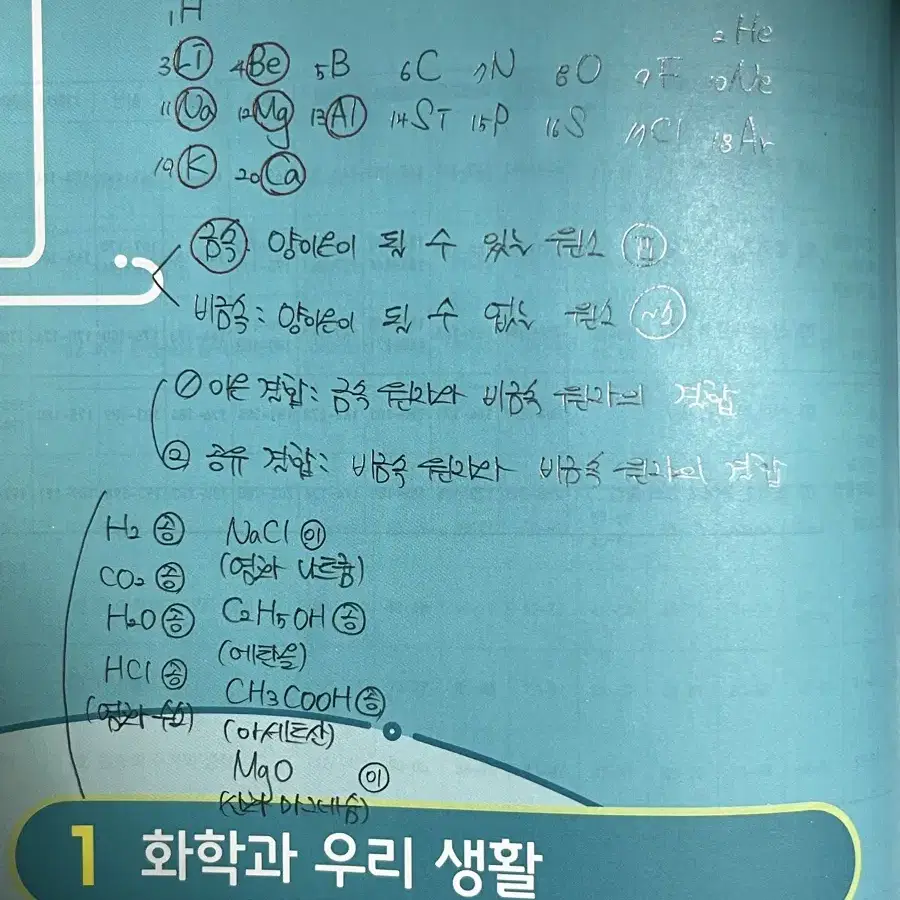 1H 2He
3Li 4Be 5B 6C 7N 8O 9F 10Ne
11Na 12Mg 13Al 14Si 15P 16S 17Cl 18Ar
19K 20Ca
금속: 양이온이 될 수 있는 원소
비금속: 양이온이 될 수 없는 원소
① 이온 결합: 금속 원자와 비금속 원자의 결합
② 공유 결합: 비금속 원자와 비금속 원자의 결합
H₂ 공 NaCl 이
(염화 나트륨)
CO₂ 공
H₂O 공 C₂H₅OH 공
(에탄올)
HCl 공
(염화 수소)
CH₃COOH 공
(아세트산)
MgO 이
(산화 마그네슘)
1 화학과 우리 생활